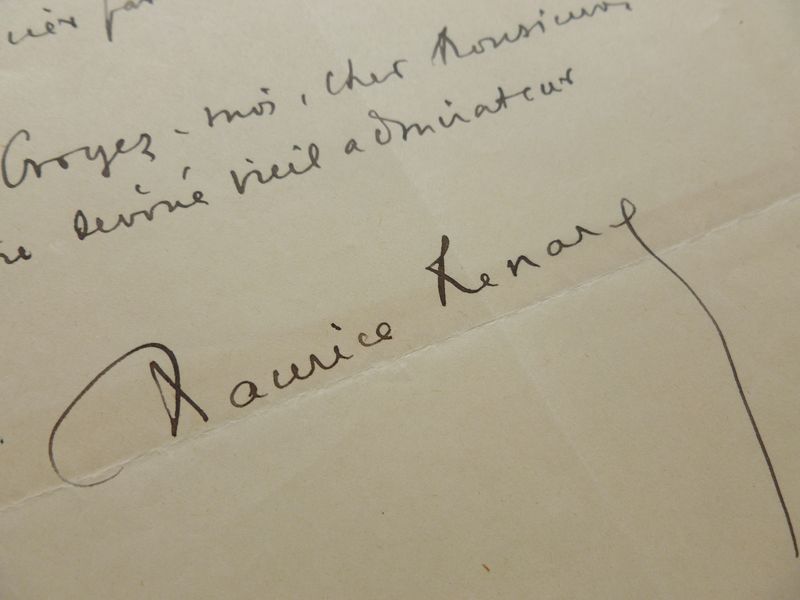 Croyez-moi, cher Monsieur,
dévoué vieil admirateur
Maurice Renard